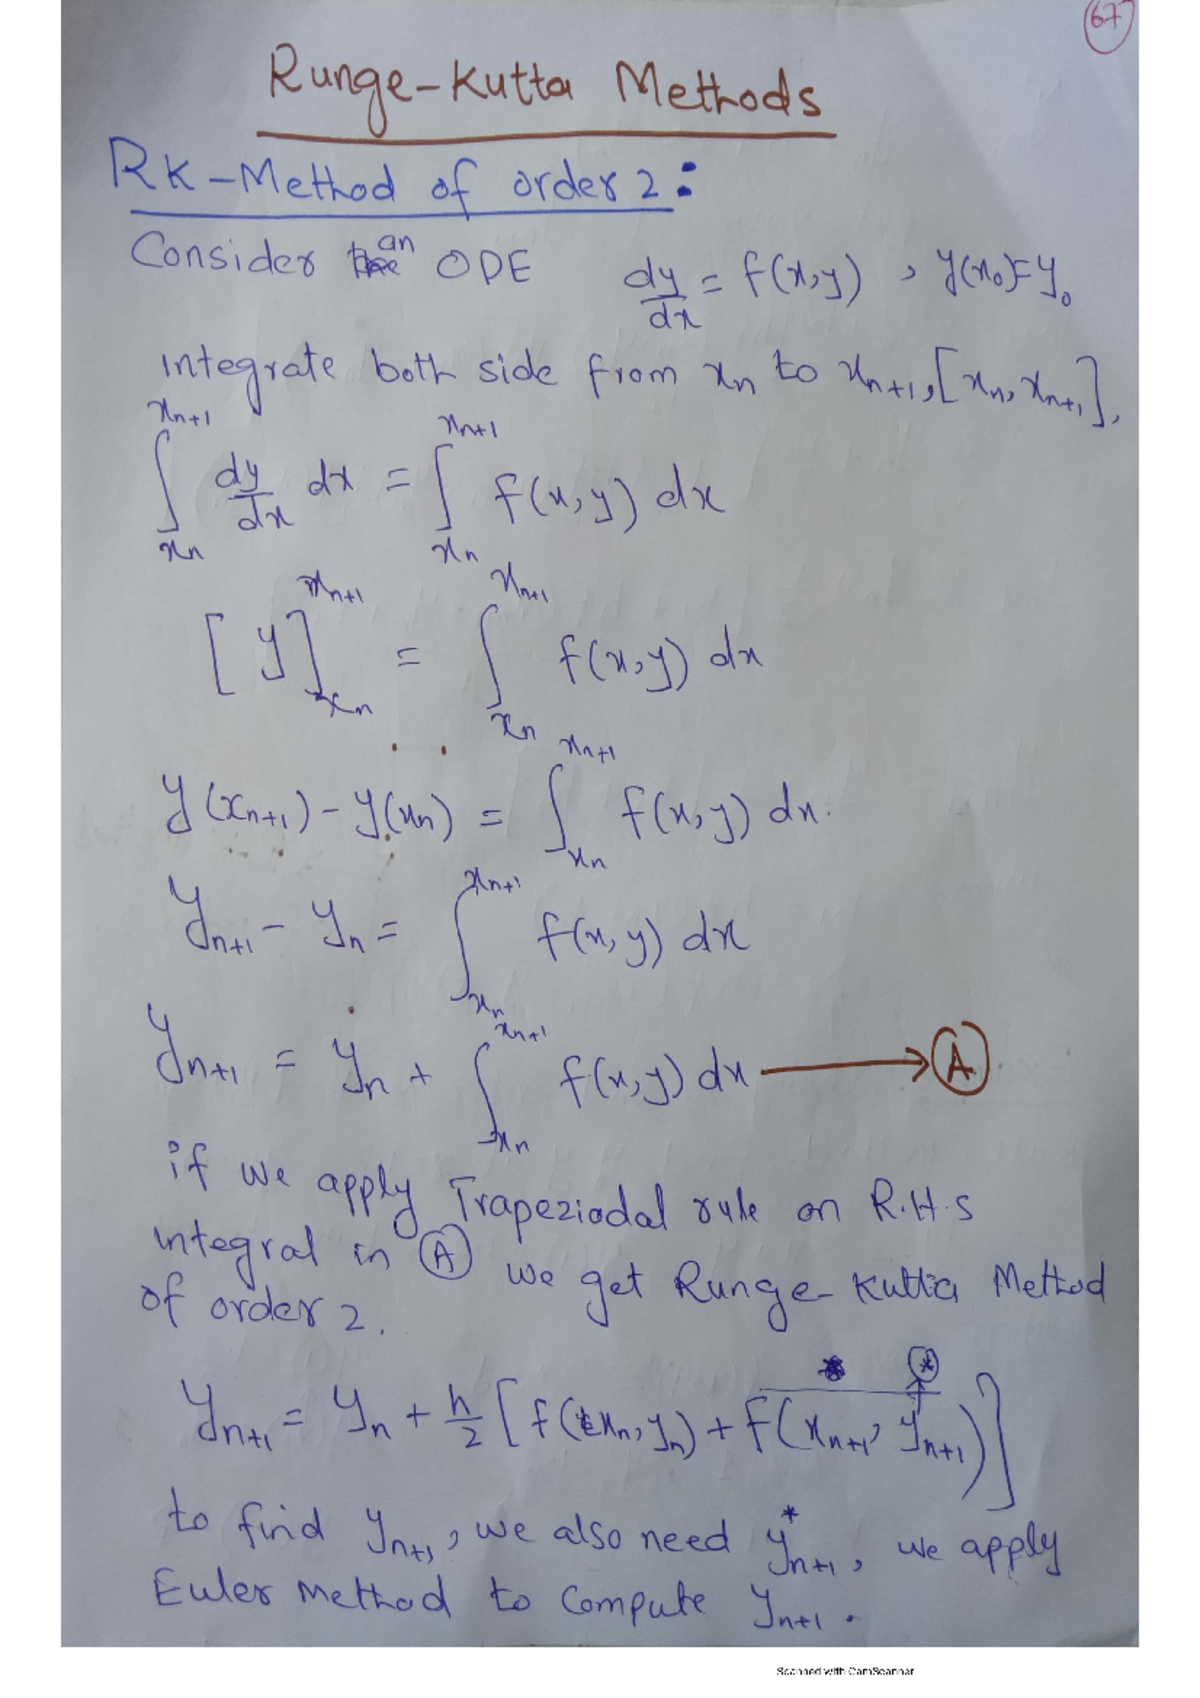 67
Runge-Kutta Methods
RK-Method of order 2:
Consider an ODE dy/dx = f(x,y) , y(x₀)=y₀
integrate both side from xₙ to xₙ₊₁, [xₙ, xₙ₊₁],
∫_{xₙ}^{xₙ₊₁} dy/dx dx = ∫_{xₙ}^{xₙ₊₁} f(x,y) dx
[y]_{xₙ}^{xₙ₊₁} = ∫_{xₙ}^{xₙ₊₁} f(x,y) dx
y(xₙ₊₁) - y(xₙ) = ∫_{xₙ}^{xₙ₊₁} f(x,y) dx.
yₙ₊₁ - yₙ = ∫_{xₙ}^{xₙ₊₁} f(x,y) dx
yₙ₊₁ = yₙ + ∫_{xₙ}^{xₙ₊₁} f(x,y) dx ⟶ Ⓐ
if we apply Trapeziodal rule on R.H.S
integral in Ⓐ we get Runge-Kutta Method
of order 2.
yₙ₊₁ = yₙ + h/2 [f(xₙ, yₙ) + f(xₙ₊₁, y*ₙ₊₁)]
to find yₙ₊₁, we also need y*ₙ₊₁, we apply
Euler Method to compute yₙ₊₁.
Scanned with CamScanner